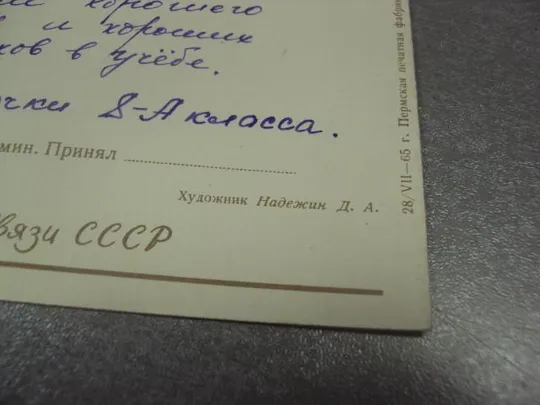 хорошего
и хороших
в учёбе.
8-А класса.
мин. Принял
Художник Надежин Д. А.
СССР
28/VII—65 г. Пермская печатная фабрика